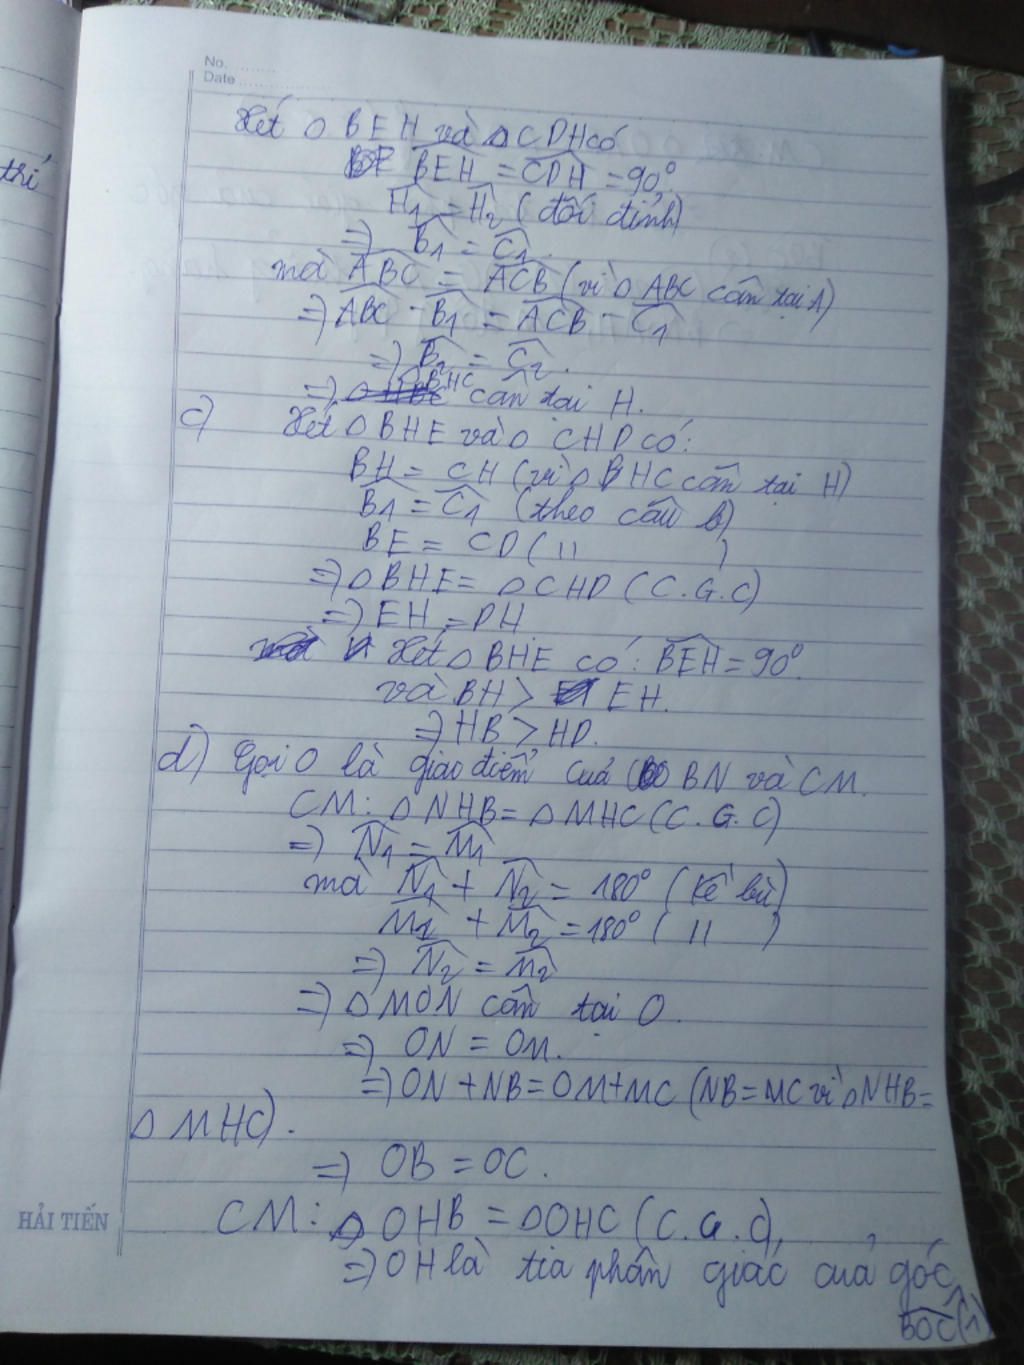 No.
Date
thí
Xét △ BEH và △CDH có
BEH = CDH = 90°
H1 = H2 (đối đỉnh)
=> B1 = C1.
mà ABC = ACB (vì △ ABC cân tại A)
=> ABC - B1 = ACB - C1
=> B2 = C2.
=> △ BHC cân tại H.
c) Xét △ BHE và △ CHD có:
BH = CH (vì △ BHC cân tại H)
B1 = C1 (theo câu b)
BE = CD ( 11 )
=> △ BHE = △ CHD (C.G.C)
=> EH = DH
Xét △ BHE có: BEH = 90°.
và BH > EH.
=> HB > HD.
d) Gọi O là giao điểm của BN và CM.
CM: △ NHB = △ MHC (C.G.C)
=> N1 = M1
mà N1 + N2 = 180° (kề bù)
M1 + M2 = 180° ( 11 )
=> N2 = M2
=> △ MON cân tại O.
=> ON = OM.
=> ON + NB = OM + MC (NB = MC vì △ NHB =
△ MHC).
=> OB = OC.
CM: △ OHB = △ OHC (C.G.C),
=> OH là tia phân giác của góc
BOC (1)
HẢI TIẾN